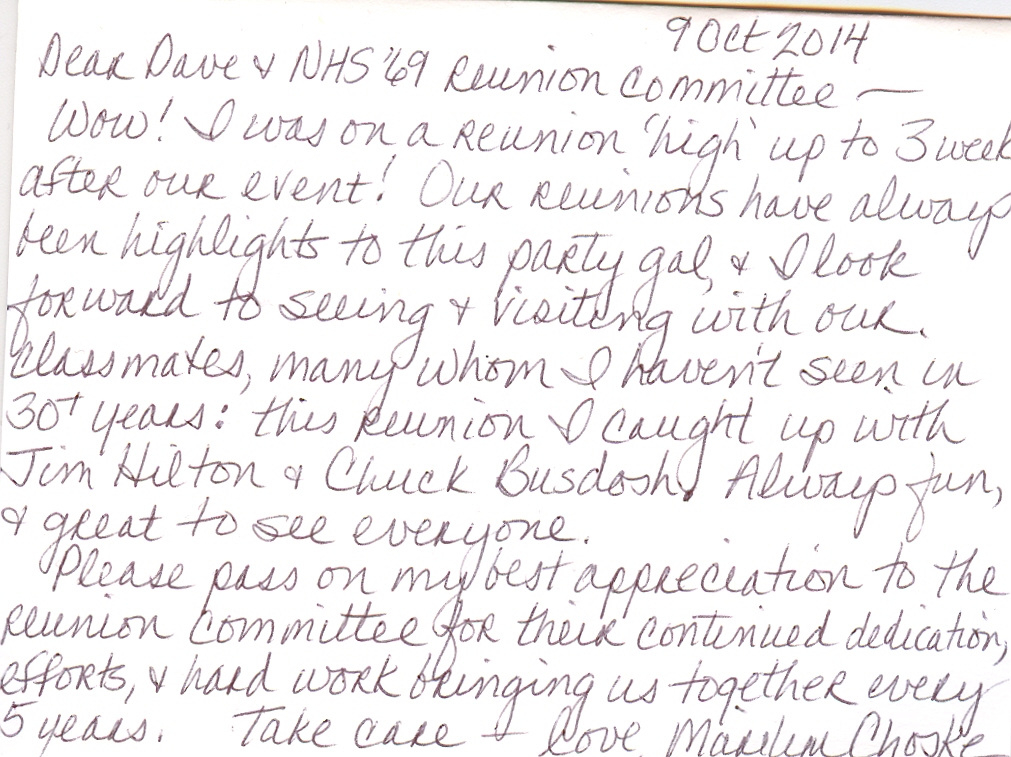 9 Oct 2014
Dear Dave & NHS '69 Reunion Committee —
Wow! I was on a reunion 'high' up to 3 week
after our event! Our reunions have always
been highlights to this party gal, & I look
forward to seeing & visiting with our
classmates, many whom I haven't seen in
30+ years: this reunion I caught up with
Jim Hilton & Chuck Busdosh. Always fun,
& great to see everyone.
Please pass on my best appreciation to the
reunion committee for their continued dedication,
efforts, & hard work bringing us together every
5 years. Take care & Love, Marilyn Choske